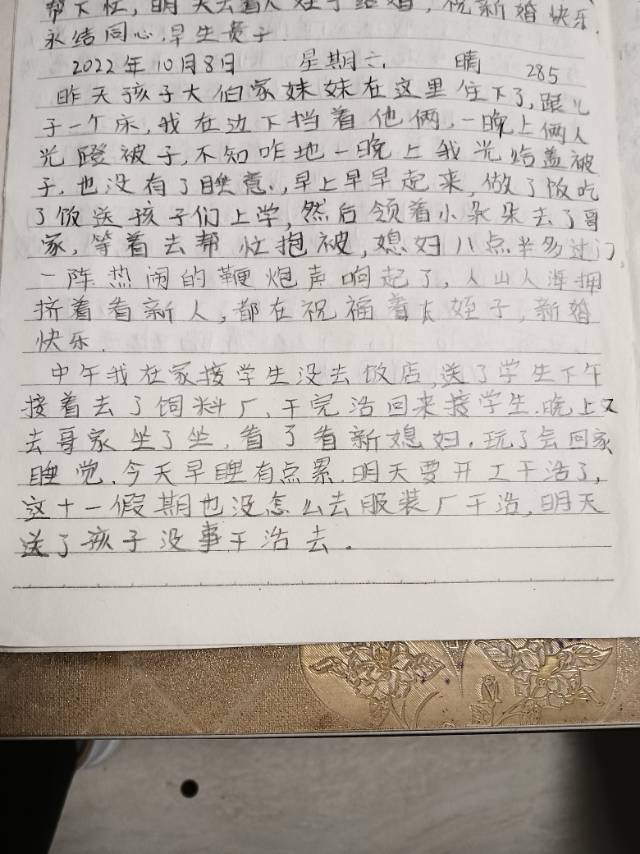 帮下忙,明天去看人娃子结婚,祝新婚快乐,
永结同心,早生贵子
2022年10月8日 星期六 晴 285
昨天孩子大伯家妹妹在这里住下了,跟儿
子一个床,我在边下挡着他俩,一晚上俩人
光蹬被子,不知咋地一晚上我光给盖被
子,也没有了睡意,早上早早起来,做了饭吃
了饭送孩子们上学,然后领着小朵朵去了哥
家,等着去帮忙抱被,媳妇八点半多过门,
一阵热闹的鞭炮声响起了,人山人海拥
挤着看新人,都在祝福着大姪子,新婚
快乐.
中午我在家接学生没去饭店,送了学生下午
接着去了饲料厂,干完活回来接学生.晚上又
去哥家坐了坐,看了看新媳妇,玩了会回家
睡觉.今天早睡有点累.明天要开工干活了,
这十一假期也没怎么去服装厂干活,明天
送了孩子没事干活去.